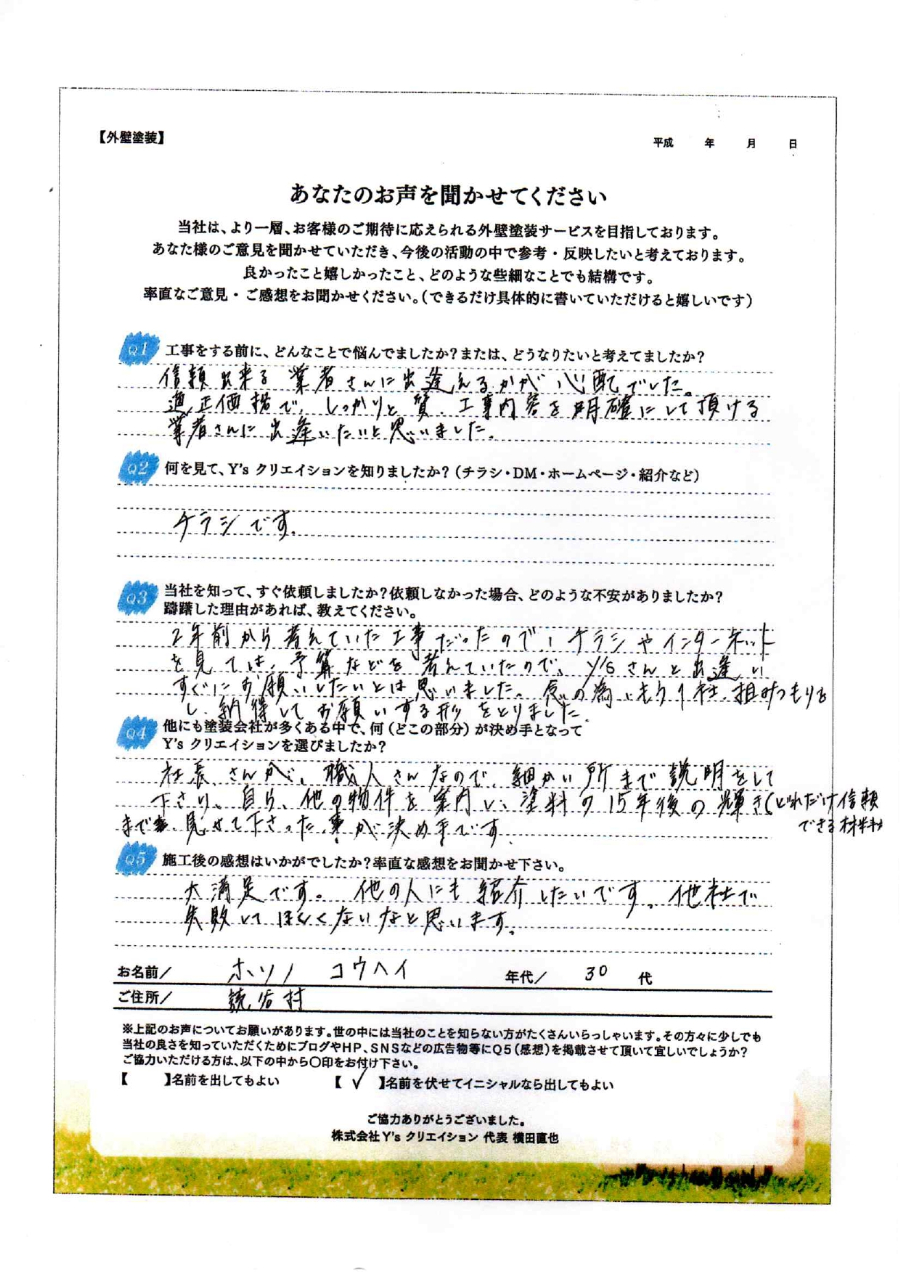 【外壁塗装】
平成 年 月 日
あなたのお声を聞かせてください
当社は、より一層、お客様のご期待に応えられる外壁塗装サービスを目指しております。
あなた様のご意見を聞かせていただき、今後の活動の中で参考・反映したいと考えております。
良かったこと嬉しかったこと、どのような些細なことでも結構です。
率直なご意見・ご感想をお聞かせください。（できるだけ具体的に書いていただけると嬉しいです）
Q1 工事をする前に、どんなことで悩んでましたか？または、どうなりたいと考えてましたか？
信頼出来る業者さんに出逢えるかが心配でした。
適正価格で、しっかりと質、工事内容を明確にして頂ける
業者さんに出逢いたいと思いました。
Q2 何を見て、Y's クリエイションを知りましたか？（チラシ・DM・ホームページ・紹介など）
チラシです。
Q3 当社を知って、すぐ依頼しましたか？依頼しなかった場合、どのような不安がありましたか？
躊躇した理由があれば、教えてください。
2年前から考えていた工事だったので、チラシやインターネット
を見ては、予算などを考えていたので、Y'Sさんと出逢い
すぐにお願いしたいとは思いました。念の為、もう1社、相みつもりを
し、納得してお願いする形をとりました。
Q4 他にも塗装会社が多くある中で、何（どこの部分）が決め手となって
Y's クリエイションを選びましたか？
社長さんが、職人さんなので、細かい所まで説明をして
下さり、自ら、他の物件を案内し、塗料の15年後の輝き（どれだけ信頼
できる材料か
まで、見せて下さった事が決め手です。
Q5 施工後の感想はいかがでしたか？率直な感想をお聞かせ下さい。
大満足です。他の人にも紹介したいです。他社で
失敗してほしくないなと思います。
お名前／ ホソノ コウヘイ 年代／ 30 代
ご住所／ 読谷村
※上記のお声についてお願いがあります。世の中には当社のことを知らない方がたくさんいらっしゃいます。その方々に少しでも
当社の良さを知っていただくためにブログやHP、SNSなどの広告物等にQ5（感想）を掲載させて頂いて宜しいでしょうか？
ご協力いただける方は、以下の中から〇印をお付け下さい。
【 】名前を出してもよい 【 ✓ 】名前を伏せてイニシャルなら出してもよい
ご協力ありがとうございました。
株式会社Y's クリエイション 代表 横田直也